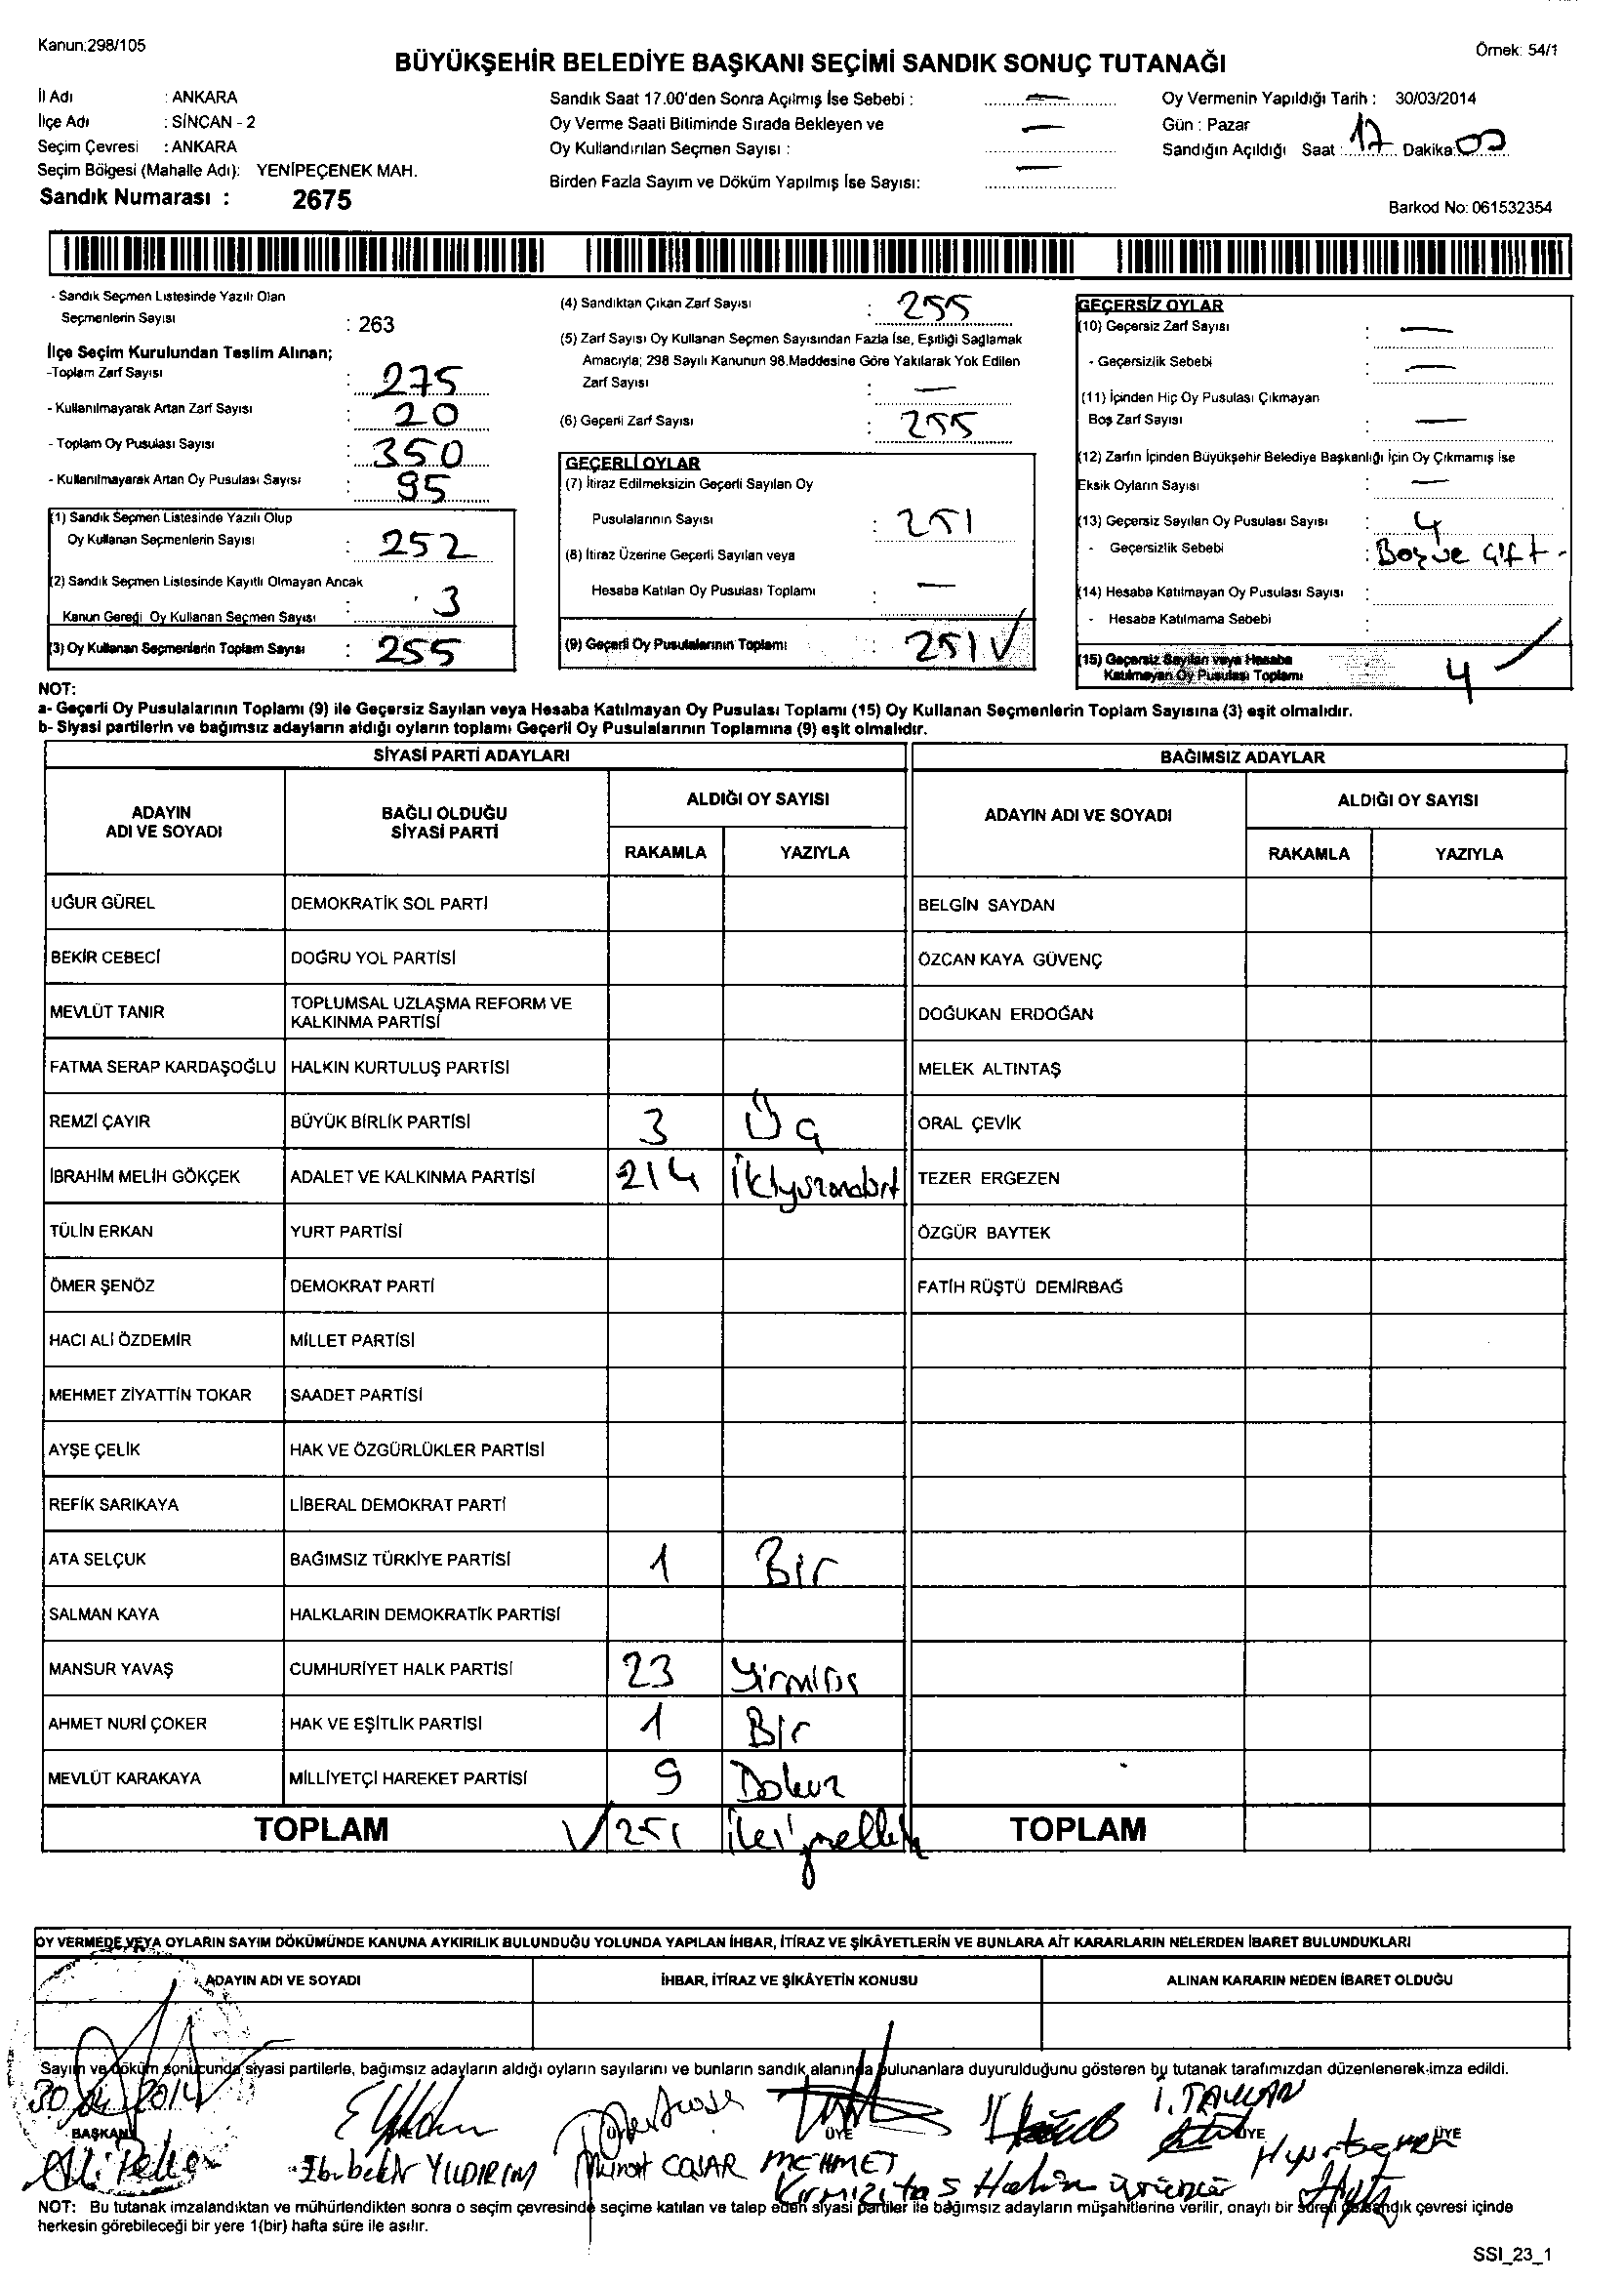 Kanun:298/105
Örnek: 54/1
BÜYÜKŞEHİR BELEDİYE BAŞKANI SEÇİMİ SANDIK SONUÇ TUTANAĞI
İl Adı : ANKARA
İlçe Adı : SİNCAN - 2
Seçim Çevresi : ANKARA
Seçim Bölgesi (Mahalle Adı): YENİPEÇENEK MAH.
Sandık Numarası : 2675
Sandık Saat 17.00'den Sonra Açılmış İse Sebebi : —
Oy Verme Saati Bitiminde Sırada Bekleyen ve
Oy Kullandırılan Seçmen Sayısı : —
Birden Fazla Sayım ve Döküm Yapılmış İse Sayısı: —
Oy Vermenin Yapıldığı Tarih : 30/03/2014
Gün : Pazar
Sandığın Açıldığı Saat : 17 Dakika: 00
Barkod No: 061532354
- Sandık Seçmen Listesinde Yazılı Olan
Seçmenlerin Sayısı : 263
İlçe Seçim Kurulundan Teslim Alınan;
-Toplam Zarf Sayısı : 275
- Kullanılmayarak Artan Zarf Sayısı : 20
- Toplam Oy Pusulası Sayısı : 350
- Kullanılmayarak Artan Oy Pusulası Sayısı : 95
(1) Sandık Seçmen Listesinde Yazılı Olup
Oy Kullanan Seçmenlerin Sayısı : 252
(2) Sandık Seçmen Listesinde Kayıtlı Olmayan Ancak
Kanun Gereği Oy Kullanan Seçmen Sayısı : 3
(3) Oy Kullanan Seçmenlerin Toplam Sayısı : 255
(4) Sandıktan Çıkan Zarf Sayısı : 255
(5) Zarf Sayısı Oy Kullanan Seçmen Sayısından Fazla İse, Eşitliği Sağlamak
Amacıyla; 298 Sayılı Kanunun 98.Maddesine Göre Yakılarak Yok Edilen
Zarf Sayısı : —
(6) Geçerli Zarf Sayısı : 255
GEÇERLİ OYLAR
(7) İtiraz Edilmeksizin Geçerli Sayılan Oy
Pusulalarının Sayısı : 251
(8) İtiraz Üzerine Geçerli Sayılan veya
Hesaba Katılan Oy Pusulası Toplamı : —
(9) Geçerli Oy Pusulalarının Toplamı : 251 ✓
GEÇERSİZ OYLAR
(10) Geçersiz Zarf Sayısı : —
- Geçersizlik Sebebi : —
(11) İçinden Hiç Oy Pusulası Çıkmayan
Boş Zarf Sayısı : —
(12) Zarfın İçinden Büyükşehir Belediye Başkanlığı İçin Oy Çıkmamış İse
Eksik Oyların Sayısı : —
(13) Geçersiz Sayılan Oy Pusulası Sayısı : 4
- Geçersizlik Sebebi : Boş ve çift -
(14) Hesaba Katılmayan Oy Pusulası Sayısı :
- Hesaba Katılmama Sebebi :
(15) Geçersiz Sayılan veya Hesaba
Katılmayan Oy Pusulası Toplamı : 4 ✓
NOT:
a- Geçerli Oy Pusulalarının Toplamı (9) ile Geçersiz Sayılan veya Hesaba Katılmayan Oy Pusulası Toplamı (15) Oy Kullanan Seçmenlerin Toplam Sayısına (3) eşit olmalıdır.
b- Siyasi partilerin ve bağımsız adayların aldığı oyların toplamı Geçerli Oy Pusulalarının Toplamına (9) eşit olmalıdır.
SİYASİ PARTİ ADAYLARI
ADAYIN
ADI VE SOYADI
BAĞLI OLDUĞU
SİYASİ PARTİ
ALDIĞI OY SAYISI
RAKAMLA YAZIYLA
UĞUR GÜREL DEMOKRATİK SOL PARTİ
BEKİR CEBECİ DOĞRU YOL PARTİSİ
MEVLÜT TANIR TOPLUMSAL UZLAŞMA REFORM VE
KALKINMA PARTİSİ
FATMA SERAP KARDAŞOĞLU HALKIN KURTULUŞ PARTİSİ
REMZİ ÇAYIR BÜYÜK BİRLİK PARTİSİ 3 Üç
İBRAHİM MELİH GÖKÇEK ADALET VE KALKINMA PARTİSİ 214 İkiyüzondört
TÜLİN ERKAN YURT PARTİSİ
ÖMER ŞENÖZ DEMOKRAT PARTİ
HACI ALİ ÖZDEMİR MİLLET PARTİSİ
MEHMET ZİYATTİN TOKAR SAADET PARTİSİ
AYŞE ÇELİK HAK VE ÖZGÜRLÜKLER PARTİSİ
REFİK SARIKAYA LİBERAL DEMOKRAT PARTİ
ATA SELÇUK BAĞIMSIZ TÜRKİYE PARTİSİ 1 Bir
SALMAN KAYA HALKLARIN DEMOKRATİK PARTİSİ
MANSUR YAVAŞ CUMHURİYET HALK PARTİSİ 23 Yirmiüç
AHMET NURİ ÇOKER HAK VE EŞİTLİK PARTİSİ 1 Bir
MEVLÜT KARAKAYA MİLLİYETÇİ HAREKET PARTİSİ 9 Dokuz
TOPLAM ✓ 251
BAĞIMSIZ ADAYLAR
ADAYIN ADI VE SOYADI
ALDIĞI OY SAYISI
RAKAMLA YAZIYLA
BELGİN SAYDAN
ÖZCAN KAYA GÜVENÇ
DOĞUKAN ERDOĞAN
MELEK ALTINTAŞ
ORAL ÇEVİK
TEZER ERGEZEN
ÖZGÜR BAYTEK
FATİH RÜŞTÜ DEMİRBAĞ
TOPLAM
OY VERMEDE VEYA OYLARIN SAYIM DÖKÜMÜNDE KANUNA AYKIRILIK BULUNDUĞU YOLUNDA YAPILAN İHBAR, İTİRAZ VE ŞİKÂYETLERİN VE BUNLARA AİT KARARLARIN NELERDEN İBARET BULUNDUKLARI
ADAYIN ADI VE SOYADI İHBAR, İTİRAZ VE ŞİKÂYETİN KONUSU ALINAN KARARIN NEDEN İBARET OLDUĞU
Sayım ve döküm sonucunda siyasi partilerle, bağımsız adayların aldığı oyların sayılarını ve bunların sandık alanında bulunanlara duyurulduğunu gösteren bu tutanak tarafımızdan düzenlenerek imza edildi.
I. TALLAN
BAŞKAN ÜYE ÜYE ÜYE ÜYE
Ebubekir YILDIRIM Murat COLAR MEHMET
Kırmızıtaş
NOT: Bu tutanak imzalandıktan ve mühürlendikten sonra o seçim çevresinde seçime katılan ve talep eden siyasi partiler ile bağımsız adayların müşahitlerine verilir, onaylı bir sureti de sandık çevresi içinde
herkesin görebileceği bir yere 1(bir) hafta süre ile asılır.
SSI_23_1